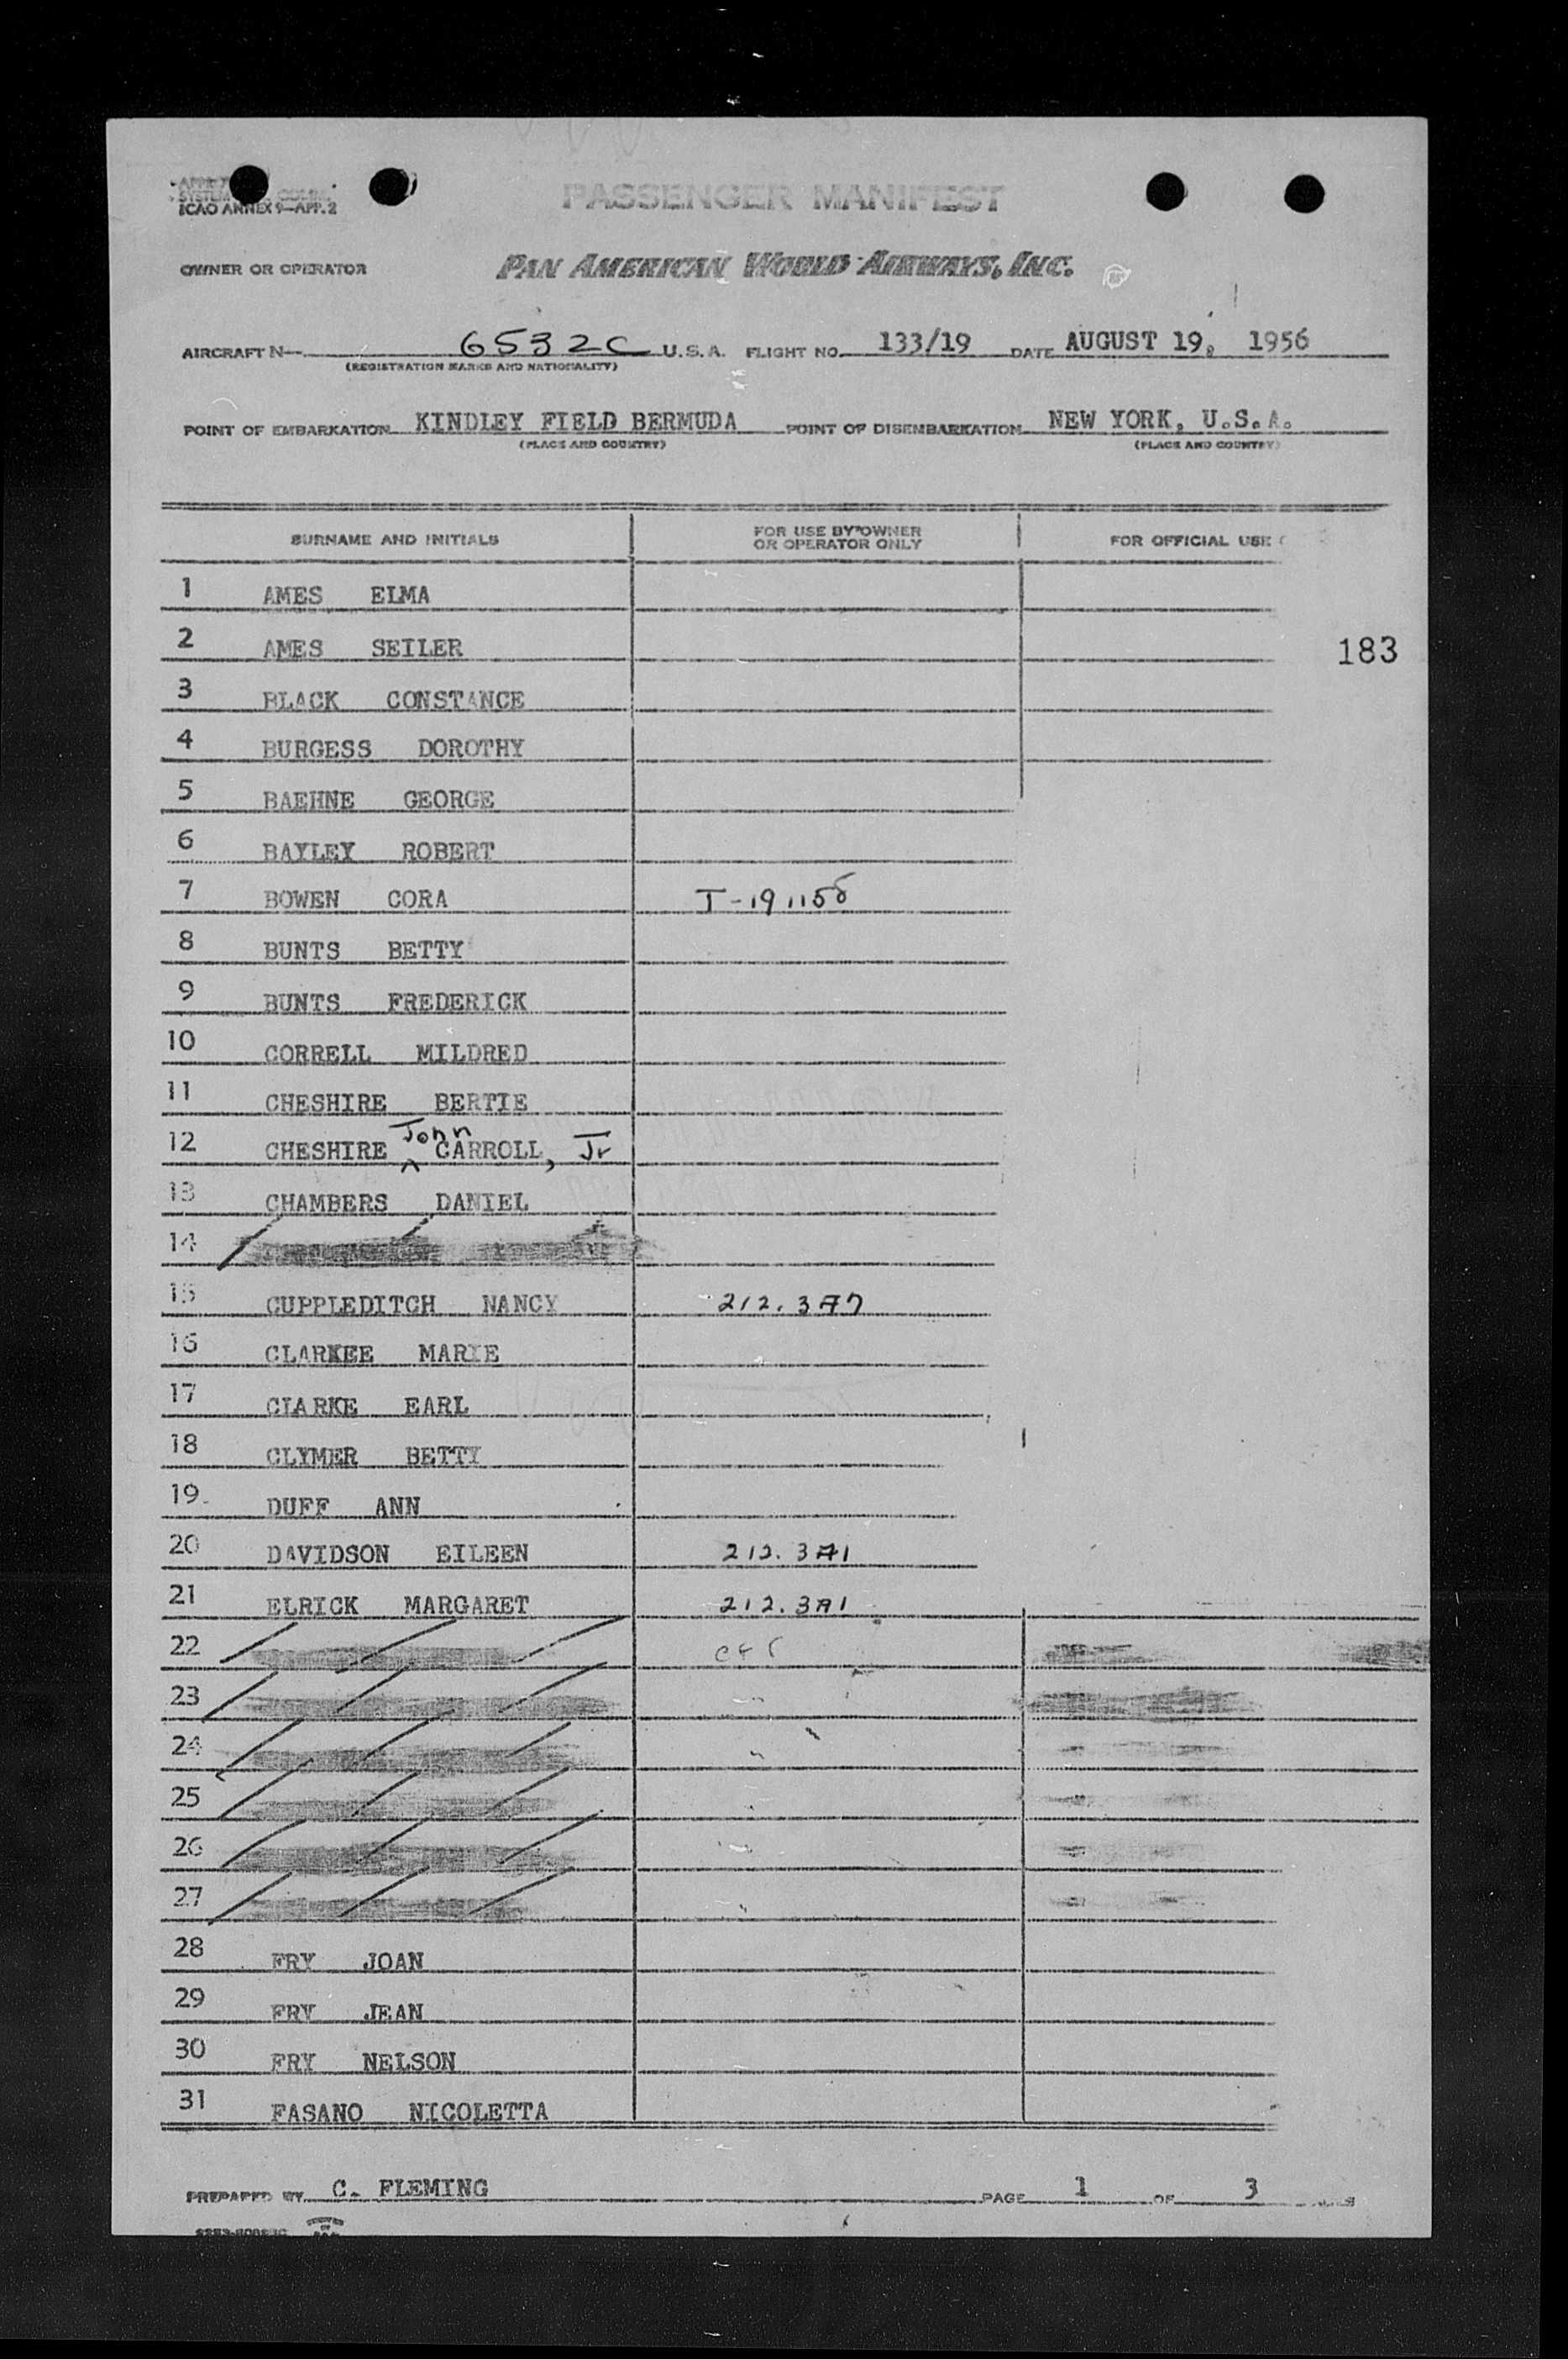 ICAO ANNEX 9—APP. 2
PASSENGER MANIFEST
OWNER OR OPERATOR PAN AMERICAN WORLD AIRWAYS, INC.
AIRCRAFT N— 6532C U.S.A. FLIGHT NO. 133/19 DATE AUGUST 19, 1956
(REGISTRATION MARKS AND NATIONALITY)
POINT OF EMBARKATION KINDLEY FIELD BERMUDA POINT OF DISEMBARKATION NEW YORK, U.S.A.
(PLACE AND COUNTRY) (PLACE AND COUNTRY)
SURNAME AND INITIALS FOR USE BY OWNER OR OPERATOR ONLY FOR OFFICIAL USE
1 AMES ELMA
2 AMES SEILER
183
3 BLACK CONSTANCE
4 BURGESS DOROTHY
5 BAEHNE GEORGE
6 BAYLEY ROBERT
7 BOWEN CORA
8 BUNTS BETTY
9 BUNTS FREDERICK
10 CORRELL MILDRED
11 CHESHIRE BERTIE
12 CHESHIRE John CARROLL, Jr
13 CHAMBERS DANIEL
14
15 CUPPLEDITCH NANCY
16 CLARKEE MARIE
17 CLARKE EARL
18 CLYMER BETTY
19 DUFF ANN
20 DAVIDSON EILEEN 212.3A1
21 ELRICK MARGARET 212.3A1
22
23
24
25
26
27
28 FRY JOAN
29 FRY JEAN
30 FRY NELSON
31 FASANO NICOLETTA
PREPARED BY C. FLEMING PAGE 1 OF 3